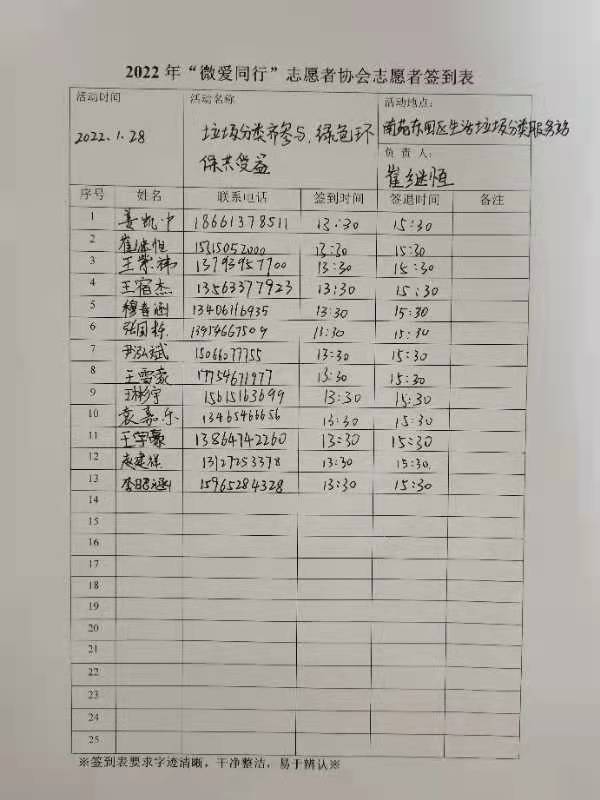 2022年“微爱同行”志愿者协会志愿者签到表
活动时间 活动名称 活动地点：
2022.1.28 垃圾分类齐参与,绿色环保共受益 南苑东园区生活垃圾分类服务站
负责人：
崔继恒
序号 姓名 联系电话 签到时间 签退时间 备注
1 姜凯中 18661378511 13:30 15:30
2 崔继恒 15715052000 13:30 15:30
3 王崇祎 13793957700 13:30 15:30
4 王宿杰 13563377923 13:30 15:30
5 穆春涵 13406116935 13:30 15:30
6 张国栋 13954667509 13:30 15:30
7 尹泓斌 15066077755 13:30 15:30
8 王雪豪 17754671977 13:30 15:30
9 王彬宇 15615163699 13:30 15:30
10 袁嘉乐 13465466656 13:30 15:30
11 王宇豪 13864742260 13:30 15:30
12 13127253378 13:30 15:30.
13 李昭涵 15965284328 13:30 15:30
14
15
16
17
18
19
20
21
22
23
24
25
※签到表要求字迹清晰，干净整洁，易于辨认※